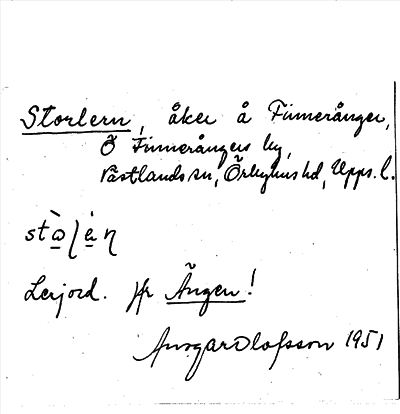 Storlern, åker å Fimerånger,
Ö Fimerångers by,
Västlands sn, Örbyhus hd, Upps. l.
Lerjord. Jfr Ängen!
Ansgar Olofsson 1951